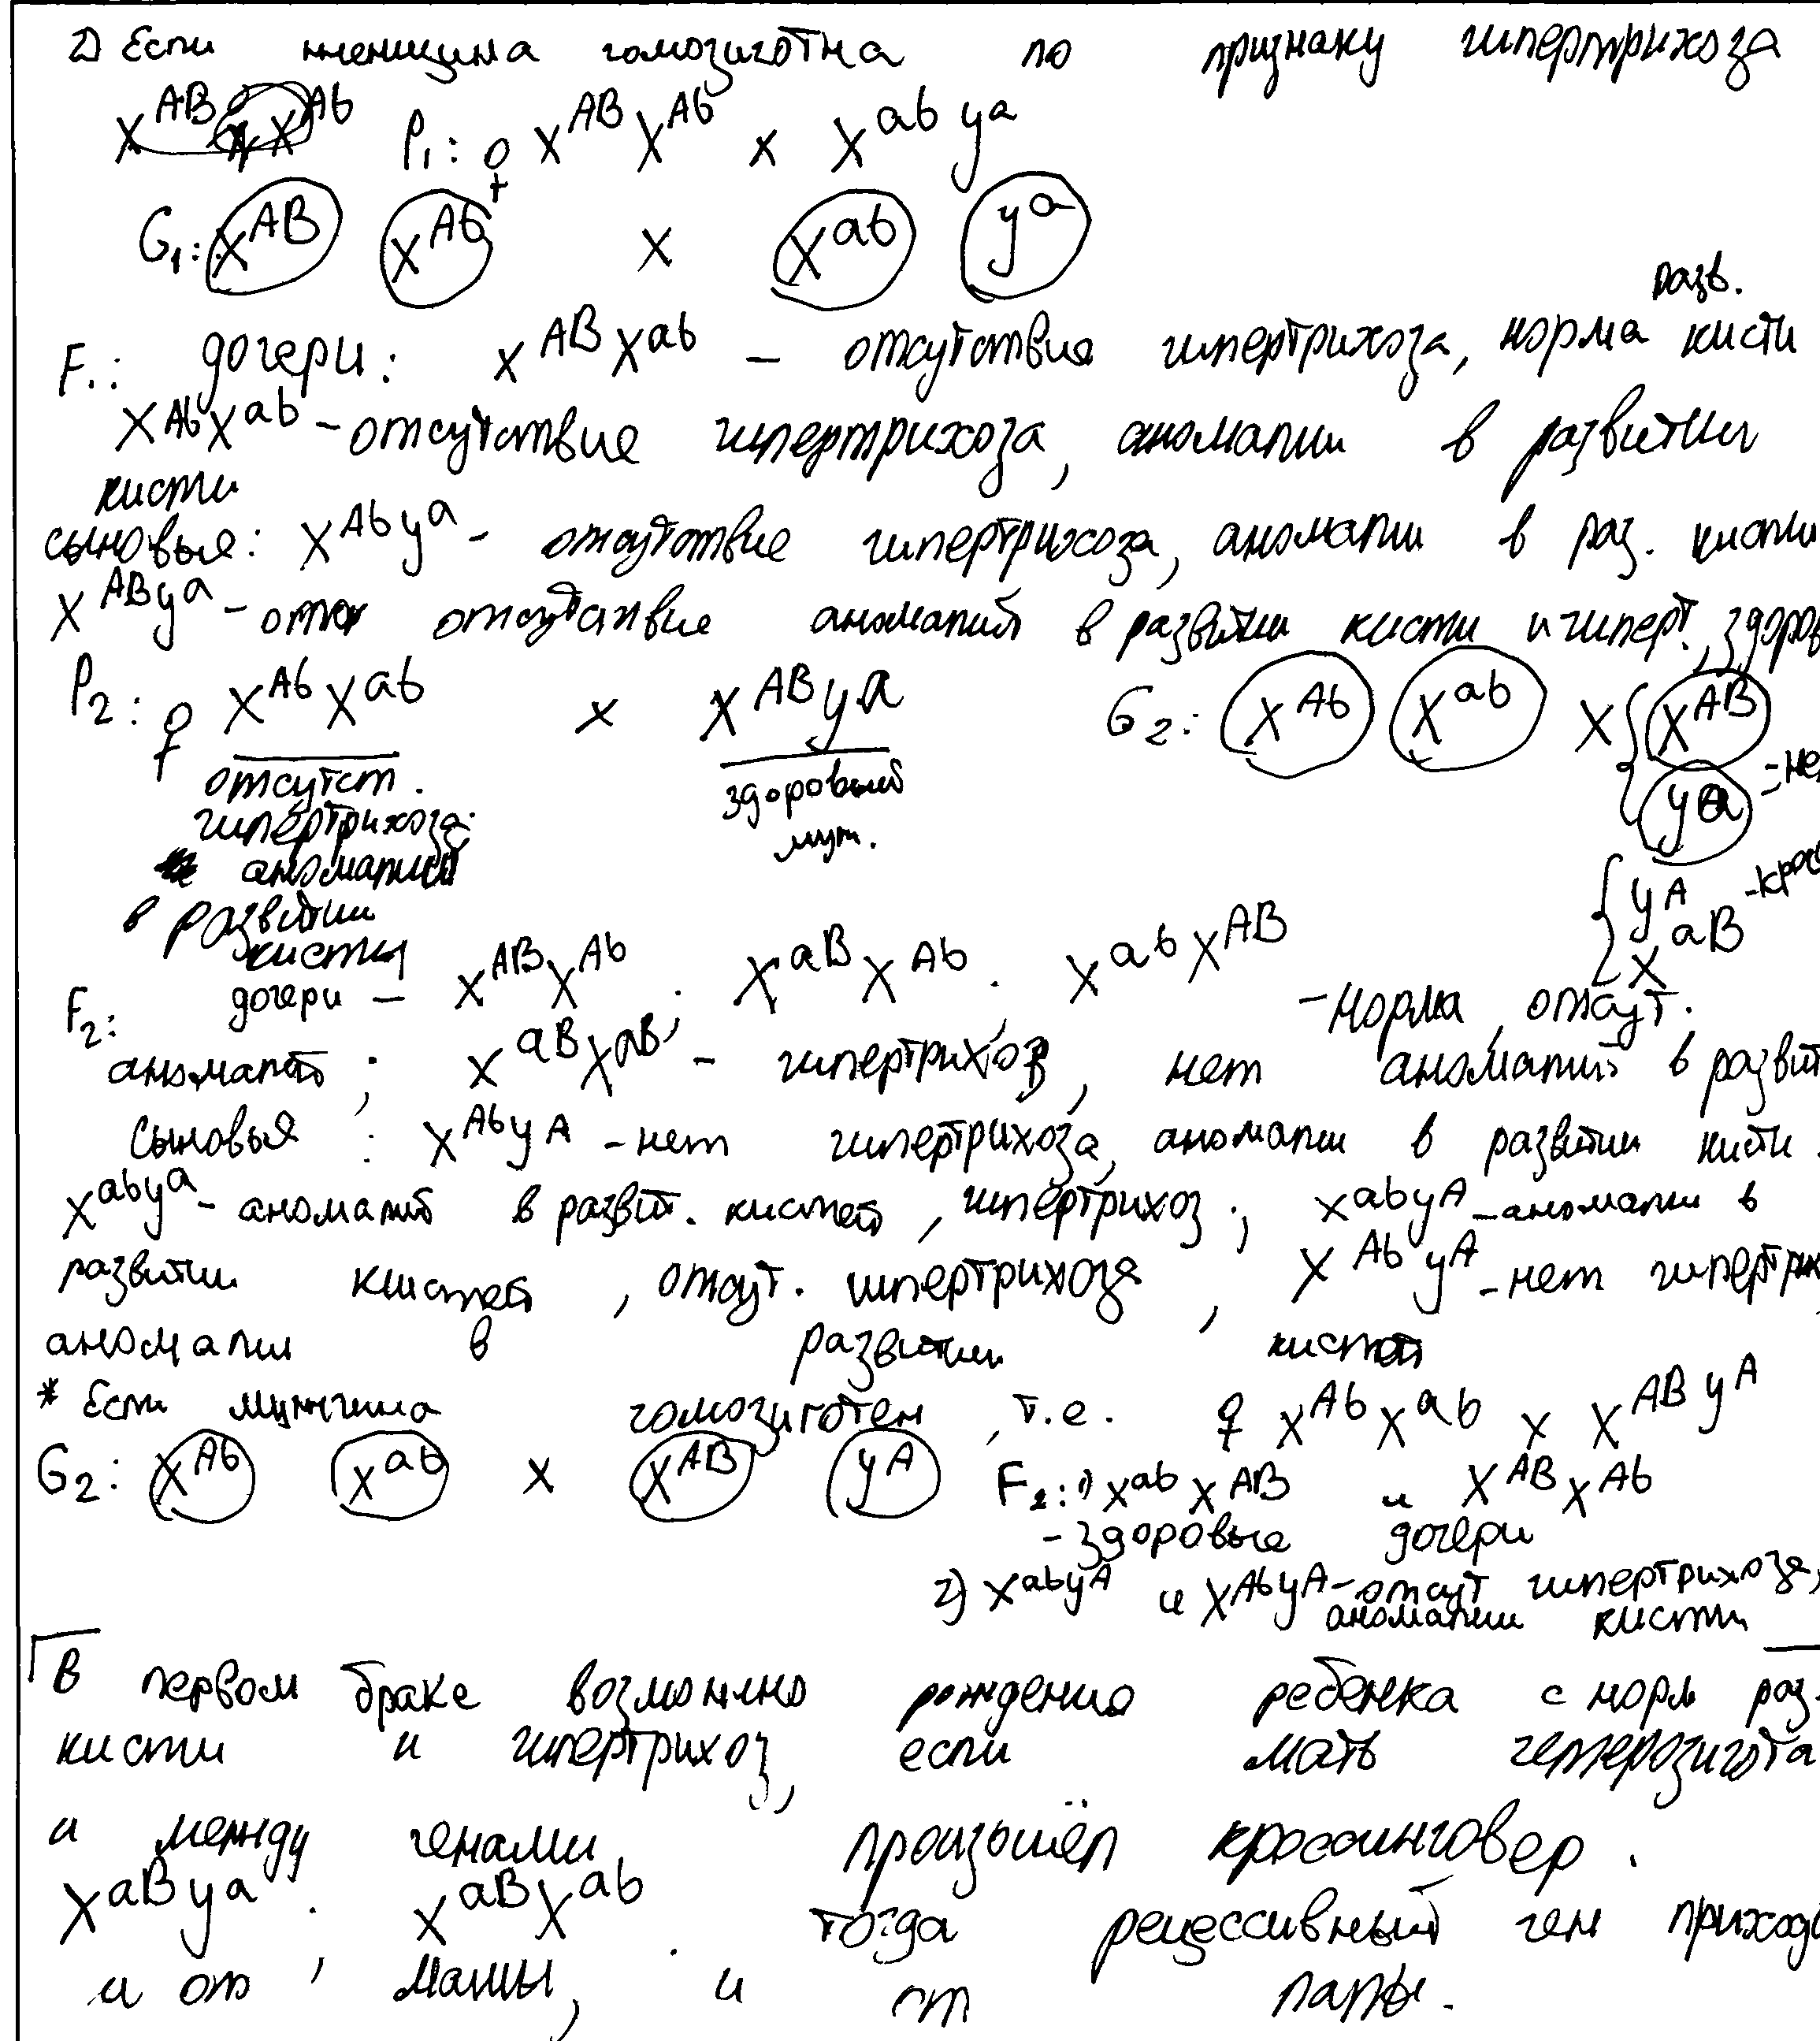 2) Если женщина гомозиготна по признаку гипертрихоза
X^AB X^Ab P₁: ♀ X^AB X^Ab x X^ab y^a
G₁: X^AB X^Ab x X^ab y^a
разв.
F₁: дочери: X^AB X^ab – отсутствия гипертрихоза, норма кисти
X^Ab X^ab – отсутствие гипертрихоза, аномалии в развитии
кисти
сыновья: X^Ab y^a – отсутствие гипертрихоза, аномалии в раз. кисти
X^AB y^a – отсутствие аномалий в развитии кисти и гиперт., здоров
P₂: ♀ X^Ab X^ab x X^AB y^a G₂: X^Ab X^ab x { X^AB
y^a – не
отсутст. здоровый
гипертрихоза муж.
аномалий
в развитии
{ y^A – крос
X^aB
кисти
F₂: дочери – X^AB X^Ab; X^aB X^Ab. X^ab X^AB – норма, отсут.
аномалий; X^aB X^aB – гипертрихоз, нет аномалий в развит
сыновья: X^Ab y^A – нет гипертрихоза, аномалии в развитии кисти.
X^ab y^a – аномалий в развит. кистей, гипертрихоз; X^ab y^A – аномалии в
развитии кистей, отсут. гипертрихоза, X^Ab y^A – нет гипертрих
аномалии в развитии кистей
* Если мужчина гомозиготен, т.е. ♀ X^Ab X^ab x X^AB y^A
G₂: X^Ab X^ab x X^AB y^A F₂: 1) X^ab X^AB и X^AB X^Ab
– здоровые дочери
2) X^ab y^A и X^Ab y^A – отсут гипертрихоза,
аномалии кисти
В первом браке возможно рождения ребенка с норм раз.
кисти и гипертрихоз, если мать гетерозигота
и между генами произошёл кроссинговер.
X^aB y^a; X^aB X^ab. тогда рецессивный ген приход
и от мамы, и от папы.